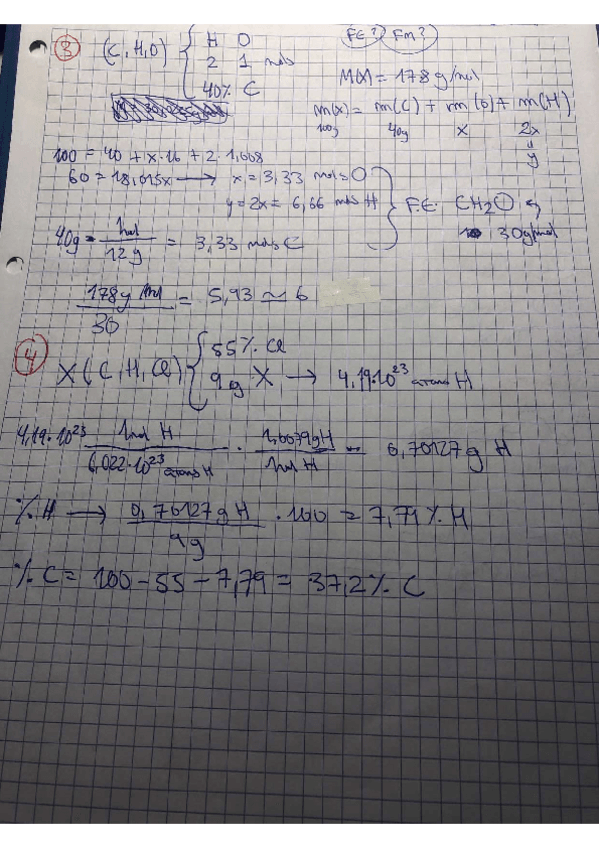 ③ (C, H, O) { H O F.E? Fm?
2 1 mols
40% C M(X) = 178 g/mol
m(x) = m(C) + m(O) + m(H)
100g 40g x 2x
y
100 = 40 + x·16 + 2·1,008
60 = 18,015x → x = 3,33 mols O
y = 2x = 6,66 mols H } F.E: CH2O
30g/mol
40g · 1mol / 12g = 3,33 mols C
178g/mol / 30 = 5,93 ≃ 6
④ X (C, H, Cl) { 55% Cl
9g X → 4,19·10^23 atoms H
4,19·10^23 1mol H / 6,022·10^23 atoms H · 1,0079gH / 1mol H = 0,70127g H
% H → 0,70127g H / 9g · 100 = 7,79% H
% C = 100 - 55 - 7,79 = 37,2% C